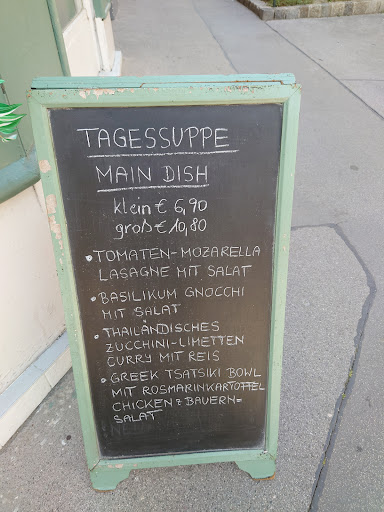 TAGESSUPPE
MAIN DISH
klein € 6,90
groß € 10,80
• TOMATEN-MOZARELLA
LASAGNE MIT SALAT
• BASILIKUM GNOCCHI
MIT SALAT
• THAILÄNDISCHES
ZUCCHINI-LIMETTEN
CURRY MIT REIS
• GREEK TSATSIKI BOWL
MIT ROSMARINKARTOFFEL
CHICKEN & BAUERN=
SALAT